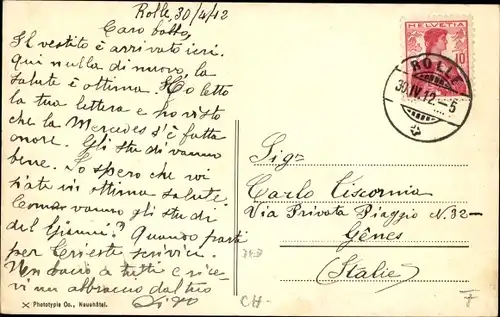 Rolle, 30/4/12
Caro babbo,
Il vestito è arrivato ieri.
Qui nulla di nuovo, la
salute è ottima. Ho letto
la tua lettera e ho visto
che la Mercedes s'è fatta
onore. Gli studi vanno
bene. Io spero che voi
siate in ottima salute.
Come vanno gli studi
del Gianni? Quando parti
per Trieste scrivici.
Un bacio a tutti e rice
vi un abbraccio dal tuo
X Phototypie Co., Neuchâtel.
HELVETIA
10
ROLLE
30.IV.12-5
Sig.
Carlo
Via Privata Piaggio N. 32-
Gênes
(Italie)
CH-